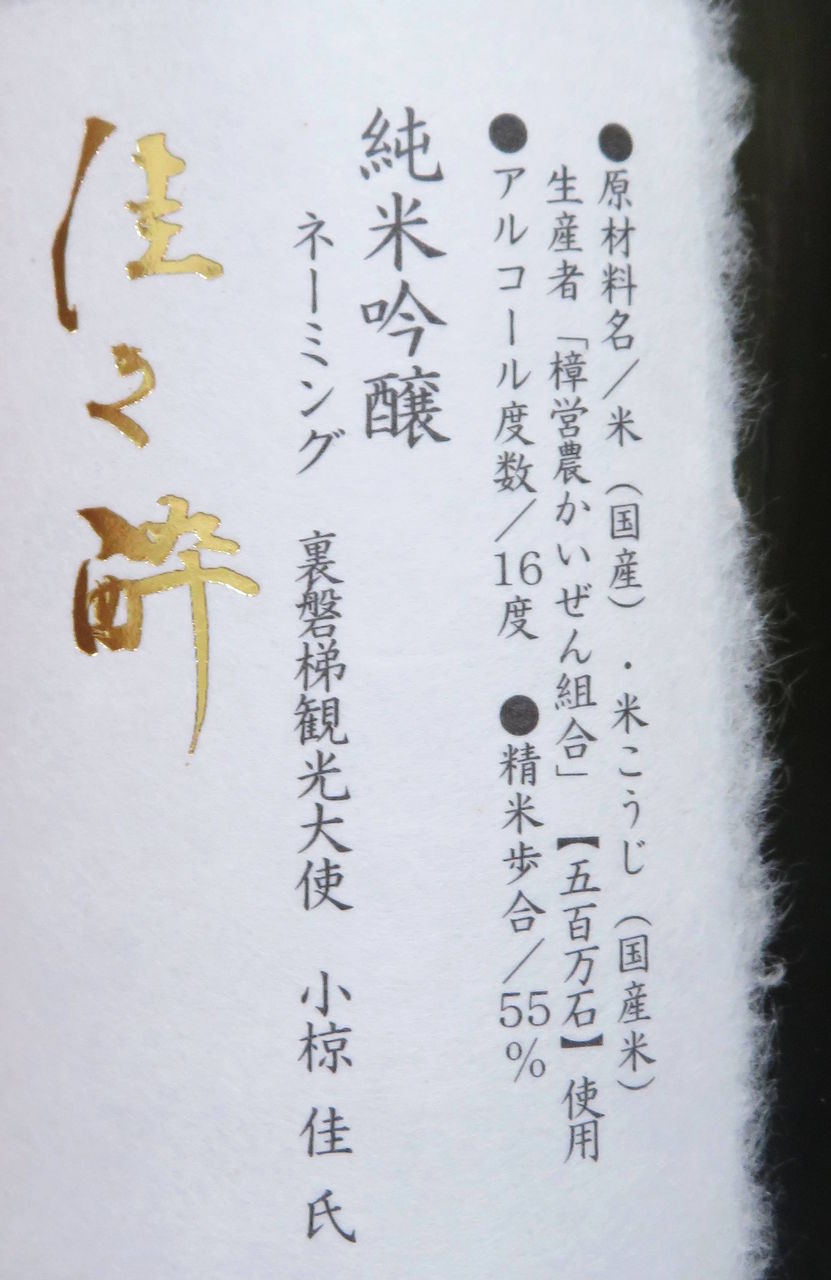 ●原材料名／米（国産）・米こうじ（国産米）
生産者「樟営農かいぜん組合」【五百万石】使用
●アルコール度数／16度 ●精米歩合／55％
純米吟醸
ネーミング 裏磐梯観光大使 小椋 佳 氏
佳々酔